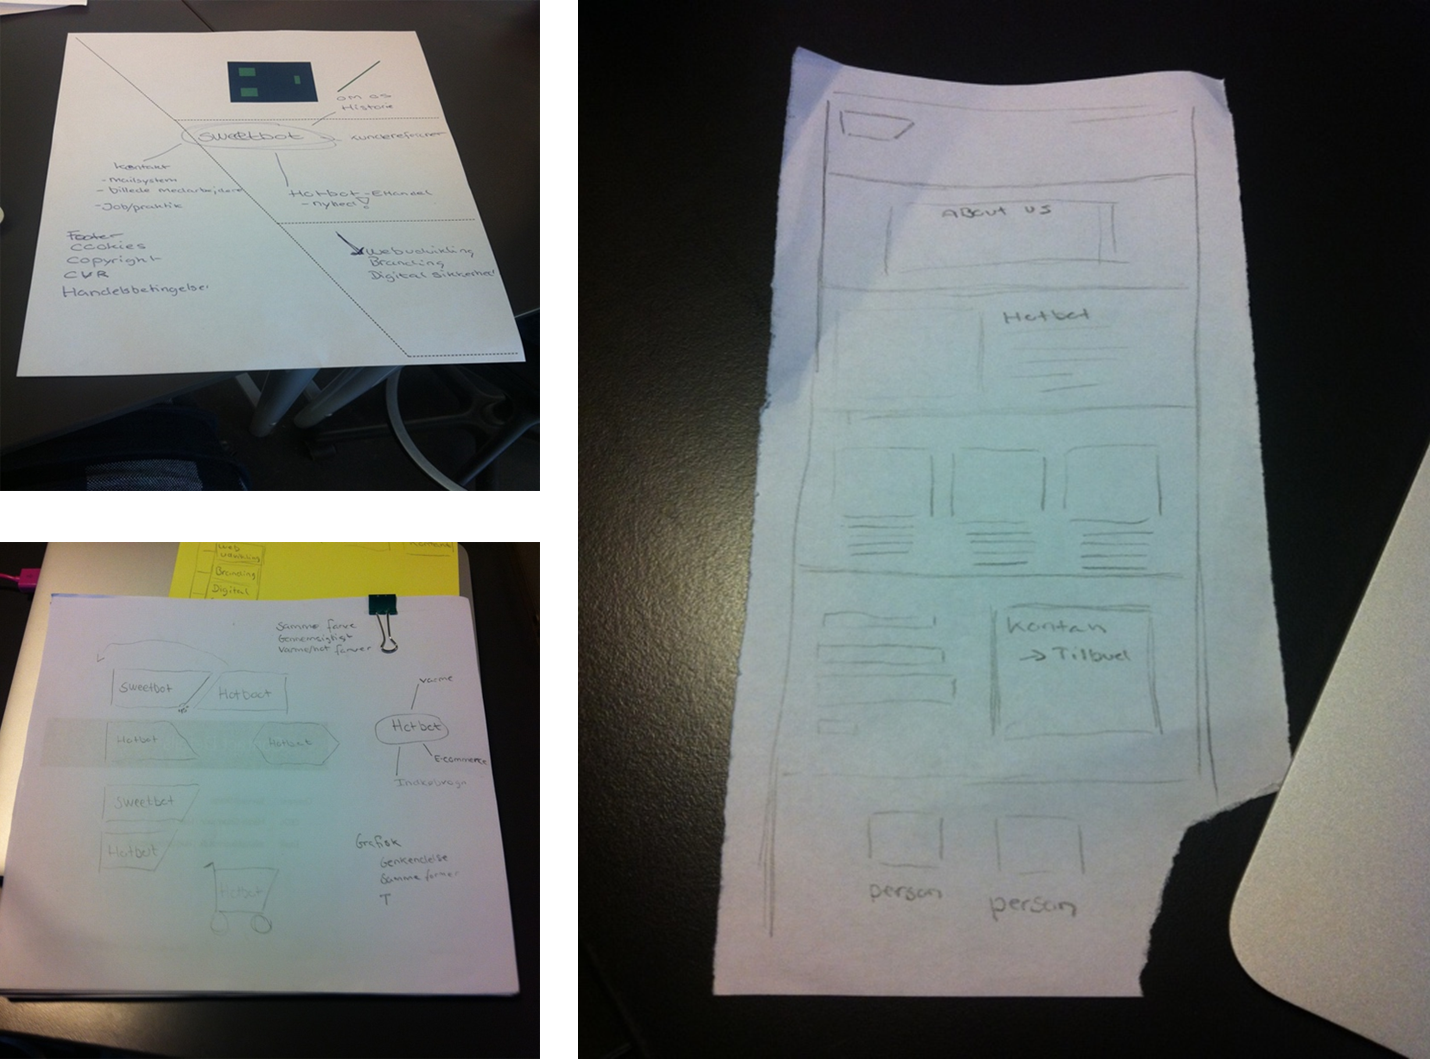 om os
Historie
Sweetbot
kundereferancer
Kontakt
- mailsystem
- billede medarbejdere
- Job/praktik
Hotbot - EHandel
- nyhed!
Footer
Cookies
Copyright
CVR
Handelsbetingelser
Webudvikling
Branding
Digital Sikkerhed
Web
Udvikling
Branding
Digital
Samme farve
Gennemsigtigt
Varme/hot farver
Sweetbot
Hotbot
varme
Hotbot
Hotbot
Hotbot
E-commerce
Sweetbot
Hotbot
Grafisk
Genkendelse
Samme former
T
Hotbot
ABout us
Hotbot
Kontak
-> Tilbud
person
person